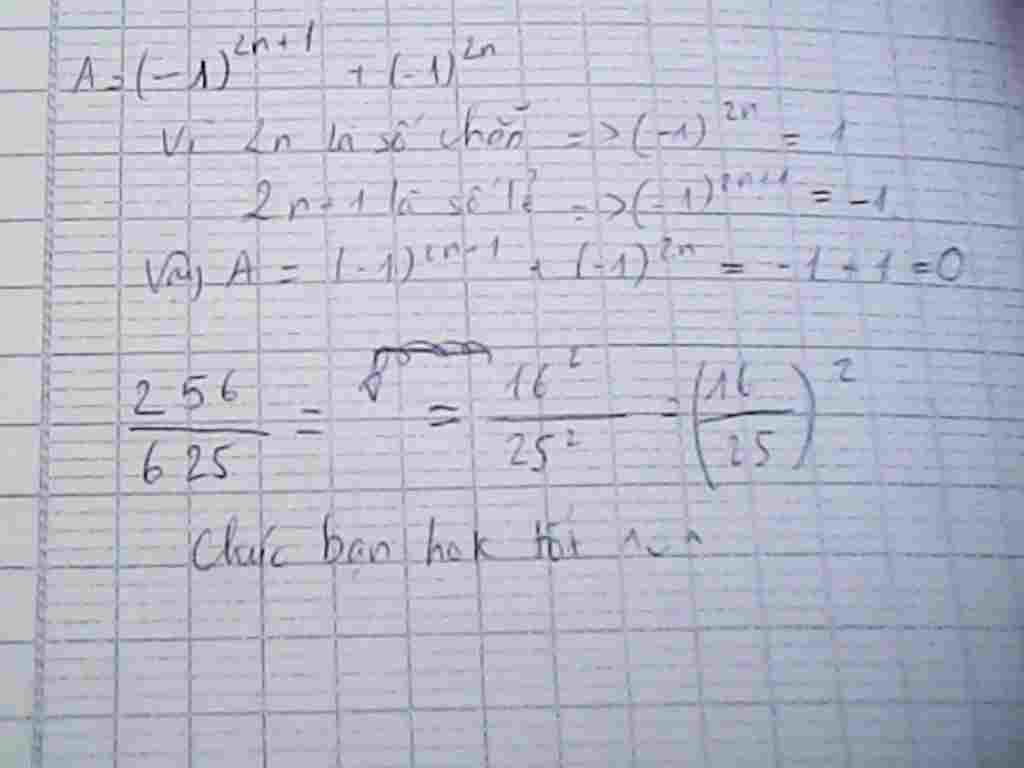 A = (-1)^{2n+1} + (-1)^{2n}
Vì 2n là số chẵn => (-1)^{2n} = 1
2n+1 là số lẻ => (-1)^{2n+1} = -1
Vậy A = (-1)^{2n+1} + (-1)^{2n} = -1 + 1 = 0
\frac{256}{625} = = \frac{16^2}{25^2} = \left(\frac{16}{25}\right)^2
Chúc bạn hok tốt ^_^